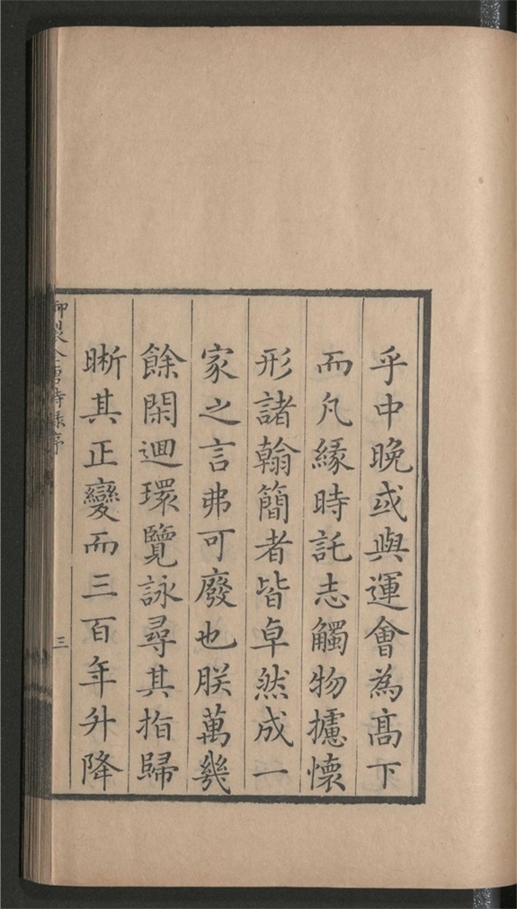 乎中晚或與運會為髙下
而凡緣時託志觸物攄懷
形諸翰簡者皆卓然成一
家之言弗可廢也朕萬幾
餘閑迴環覽詠尋其指歸
晰其正變而三百年升降
御製全唐詩錄序
三